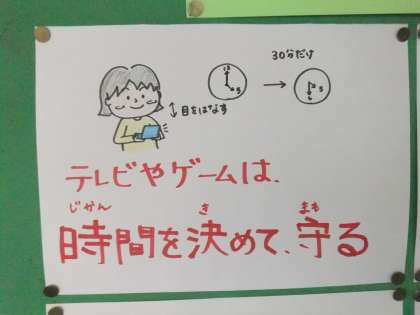 30分だけ
目をはなす
テレビやゲームは、
じかん き まも
時間を決めて、守る